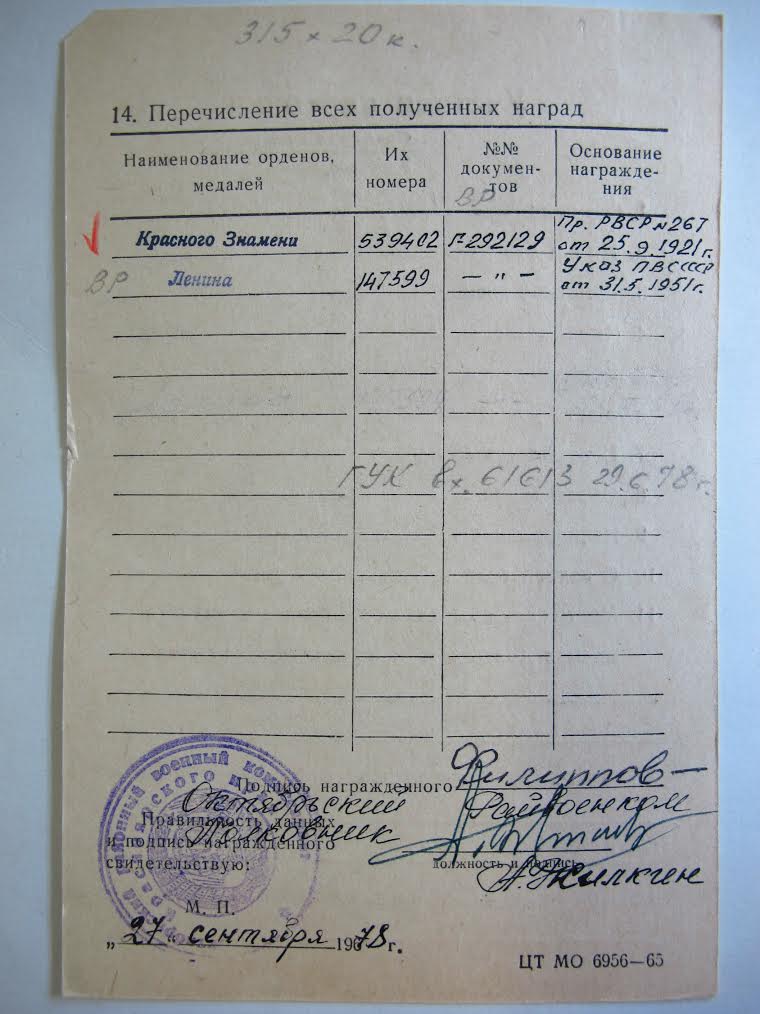 315 × 20 к.
14. Перечисление всех полученных наград
Наименование орденов, медалей
Их номера
№№ докумен-тов
Основание награжде-ния
ВР
Красного Знамени 539402 Г-292129 Пр. РВСР №267 от 25.9.1921г.
ВР Ленина 147599 — " — Указ ПВС СССР от 31.5.1951г.
ГУК вх. 61613 29.6.78г.
Подпись награжденного Филиппов
Октябрьский Райвоенком
Правильность данных
Полковник
и подпись награжденного
свидетельствую:
должность и подпись
А. Жилкин
М. П.
„27“ сентября 1978г.
ЦТ МО 6956—65
районный военный